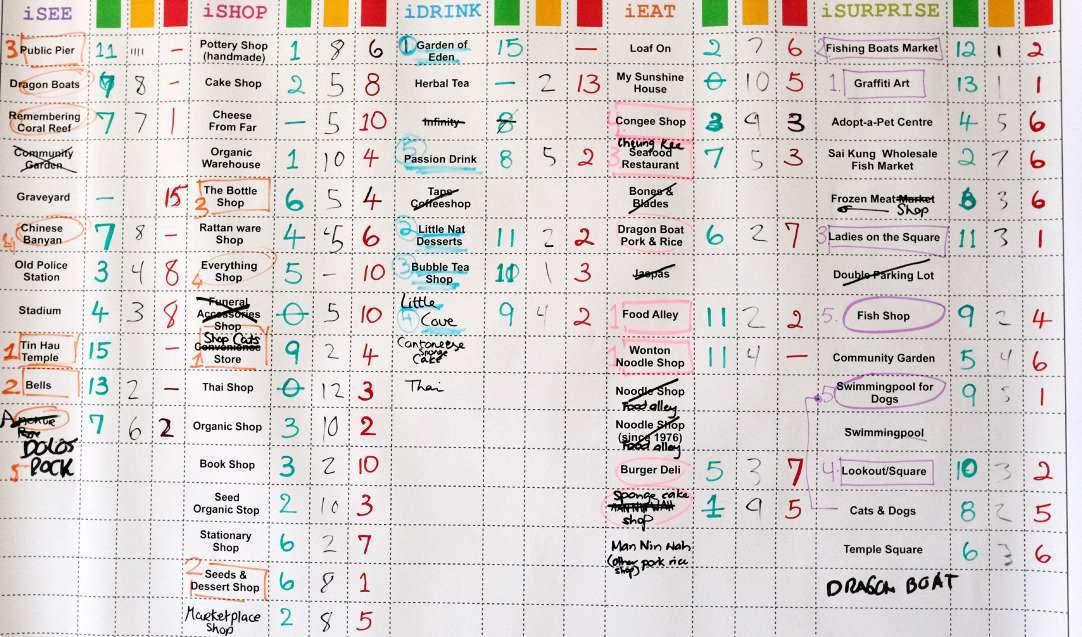 iSEE iSHOP iDRINK iEAT iSURPRISE
3 Public Pier 11 IIII - Pottery Shop (handmade) 1 8 6 1 Garden of Eden 15 - Loaf On 2 7 6 Fishing Boats Market 12 1 2
Dragon Boats 8 - Cake Shop 2 5 8 Herbal Tea - 2 13 My Sunshine House 0 10 5 1. Graffiti Art 13 1 1
Remembering Coral Reef 7 7 1 Cheese From Far - 5 10 Infinity 8 Congee Shop 3 9 3 Adopt-a-Pet Centre 4 5 6
Community Garden Organic Warehouse 1 10 4 5 Passion Drink 8 5 2 3 Cheung Kee Seafood Restaurant 7 5 3 Sai Kung Wholesale Fish Market 2 7 6
Graveyard - 15 3 The Bottle Shop 6 5 4 Taps Coffeeshop Bones & Blades Frozen Meat Market Shop 8 3 6
4 Chinese Banyan 7 8 - Rattan ware Shop 4 5 6 2 Little Nat Desserts 11 2 2 Dragon Boat Pork & Rice 6 2 7 3 Ladies on the Square 11 3 1
Old Police Station 3 4 8 4 Everything Shop 5 - 10 3 Bubble Tea Shop 10 1 3 Jaspas Double Parking Lot
Stadium 4 3 8 Funeral Accessories Shop 0 5 10 4 Little Cove 9 4 2 1 Food Alley 11 2 2 5. Fish Shop 9 2 4
1 Tin Hau Temple 15 - 1 Shop Cats Convenience Store 9 2 4 Cantoneese Sponge Cake 1 Wonton Noodle Shop 11 4 - Community Garden 5 4 6
2 Bells 13 2 - Thai Shop 0 12 3 Thai Noodle Shop Food alley 5 Swimmingpool for Dogs 9 5 1
7 6 2 Organic Shop 3 10 2 Noodle Shop (since 1976) Food alley Swimmingpool
5 DOLOS POCK Book Shop 3 2 10 Burger Deli 5 3 7 4. Lookout/Square 10 3 2
Seed Organic Stop 2 10 3 Sponge cake shop 1 9 5 Cats & Dogs 8 2 5
Stationary Shop 6 2 7 Man Nin Wah (other pork rice shop) Temple Square 6 3 6
2 Seeds & Dessert Shop 6 8 1 DRAGON BOAT
Marketplace Shop 2 8 5